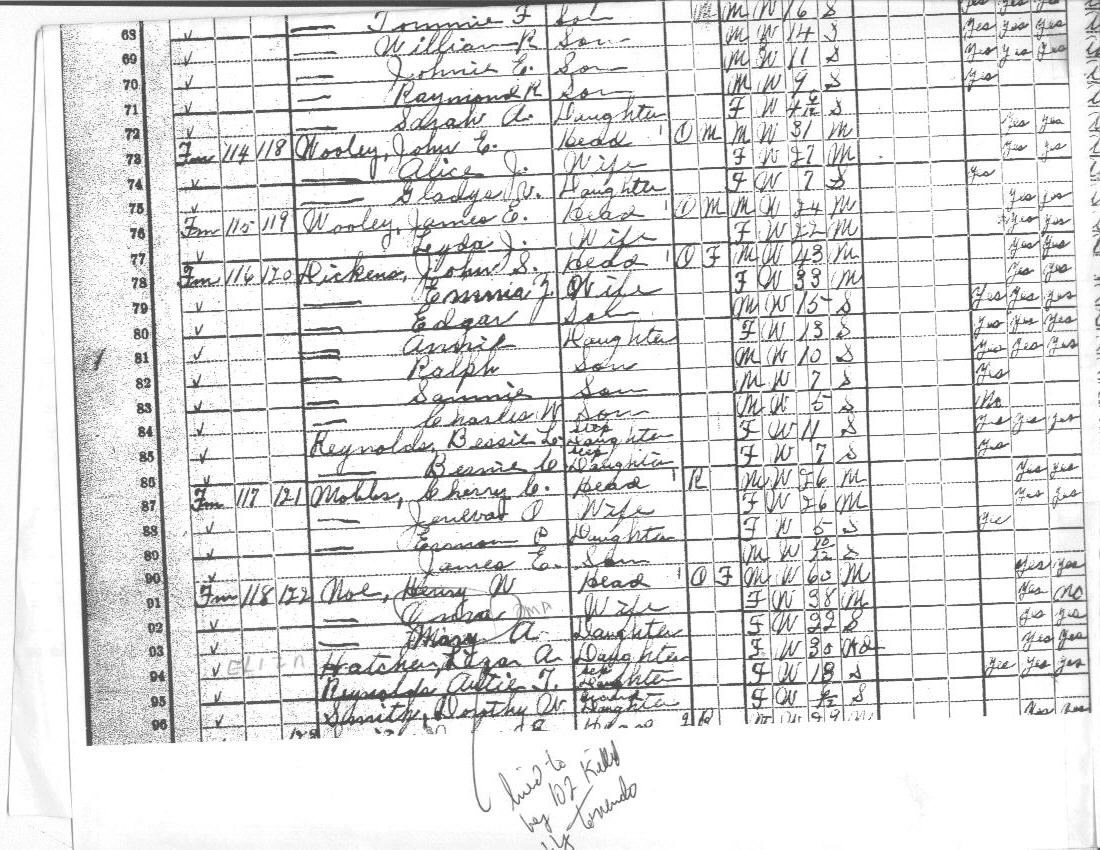 Tommie F Son M M W 16 S Yes Yes Yes
68 William R Son M W 14 S Yes Yes Yes
69 Johnie E. Son M W 11 S Yes Yes Yes
70 Raymond R Son M W 9 S Yes
71 Sarah A. Daughter F W S
72 Fm 114 118 Wooley, John E. Head O M M W 31 M Yes Yes
73 Alice J. Wife F W 27 M Yes Yes
74 Gladys V. Daughter F W 7 S Yes
75 Fm 115 119 Wooley, James E. Head O M M W 24 M Yes Yes
76 Leyda J. Wife F W 22 M Yes Yes
77 Fm 116 120 Dickens, John S. Head O F M W 43 M Yes Yes
78 Emmia Z Wife F W 33 M Yes Yes
79 Edgar Son M W 15 S Yes Yes Yes
80 Annie Daughter F W 13 S Yes Yes Yes
81 Ralph Son M W 10 S Yes Yes Yes
82 Sammie Son M W 7 S Yes
83 Charles W Son M W 5 S No
84 Reynolds, Bessie L. Step Daughter F W 11 S Yes Yes Yes
85 Bernie C Step Daughter F W 7 S Yes
86 Fm 117 121 Mobbs, Cherry C. Head R M W 26 M Yes Yes
87 Wife F W 26 M Yes Yes
88 Daughter F W 5 S Yes
89 James E. Son M W 10/12 S
90 Fm 118 122 Noe, Henry W Head O F M W 60 M Yes Yes
91 Wife F W 38 M Yes No
92 Mary A. Daughter F W 22 S Yes Yes
93 ELIZA Hatcher, A. Daughter F W 30 Yes Yes
94 Reynolds, Autie T. Step Daughter F W 13 S Yes Yes Yes
95 Smith, Dorthy W. Grand Daughter F W S
96
lived to
be 102 Killed
by tornado